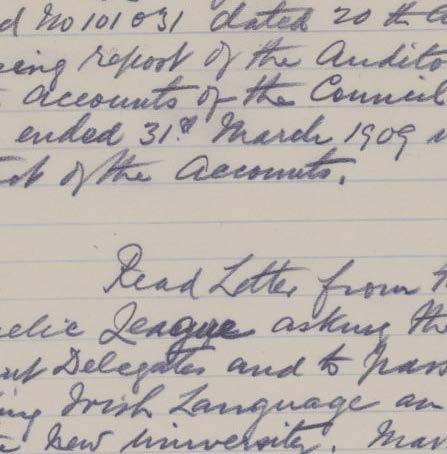 d No 101031 dated 20th
ing report of the Audito
accounts of the Council
ended 31st March 1909
of the Accounts.
Read Letter from t
elic League asking the
nt Delegates and to pass
ing Irish Language an
New University. Mar